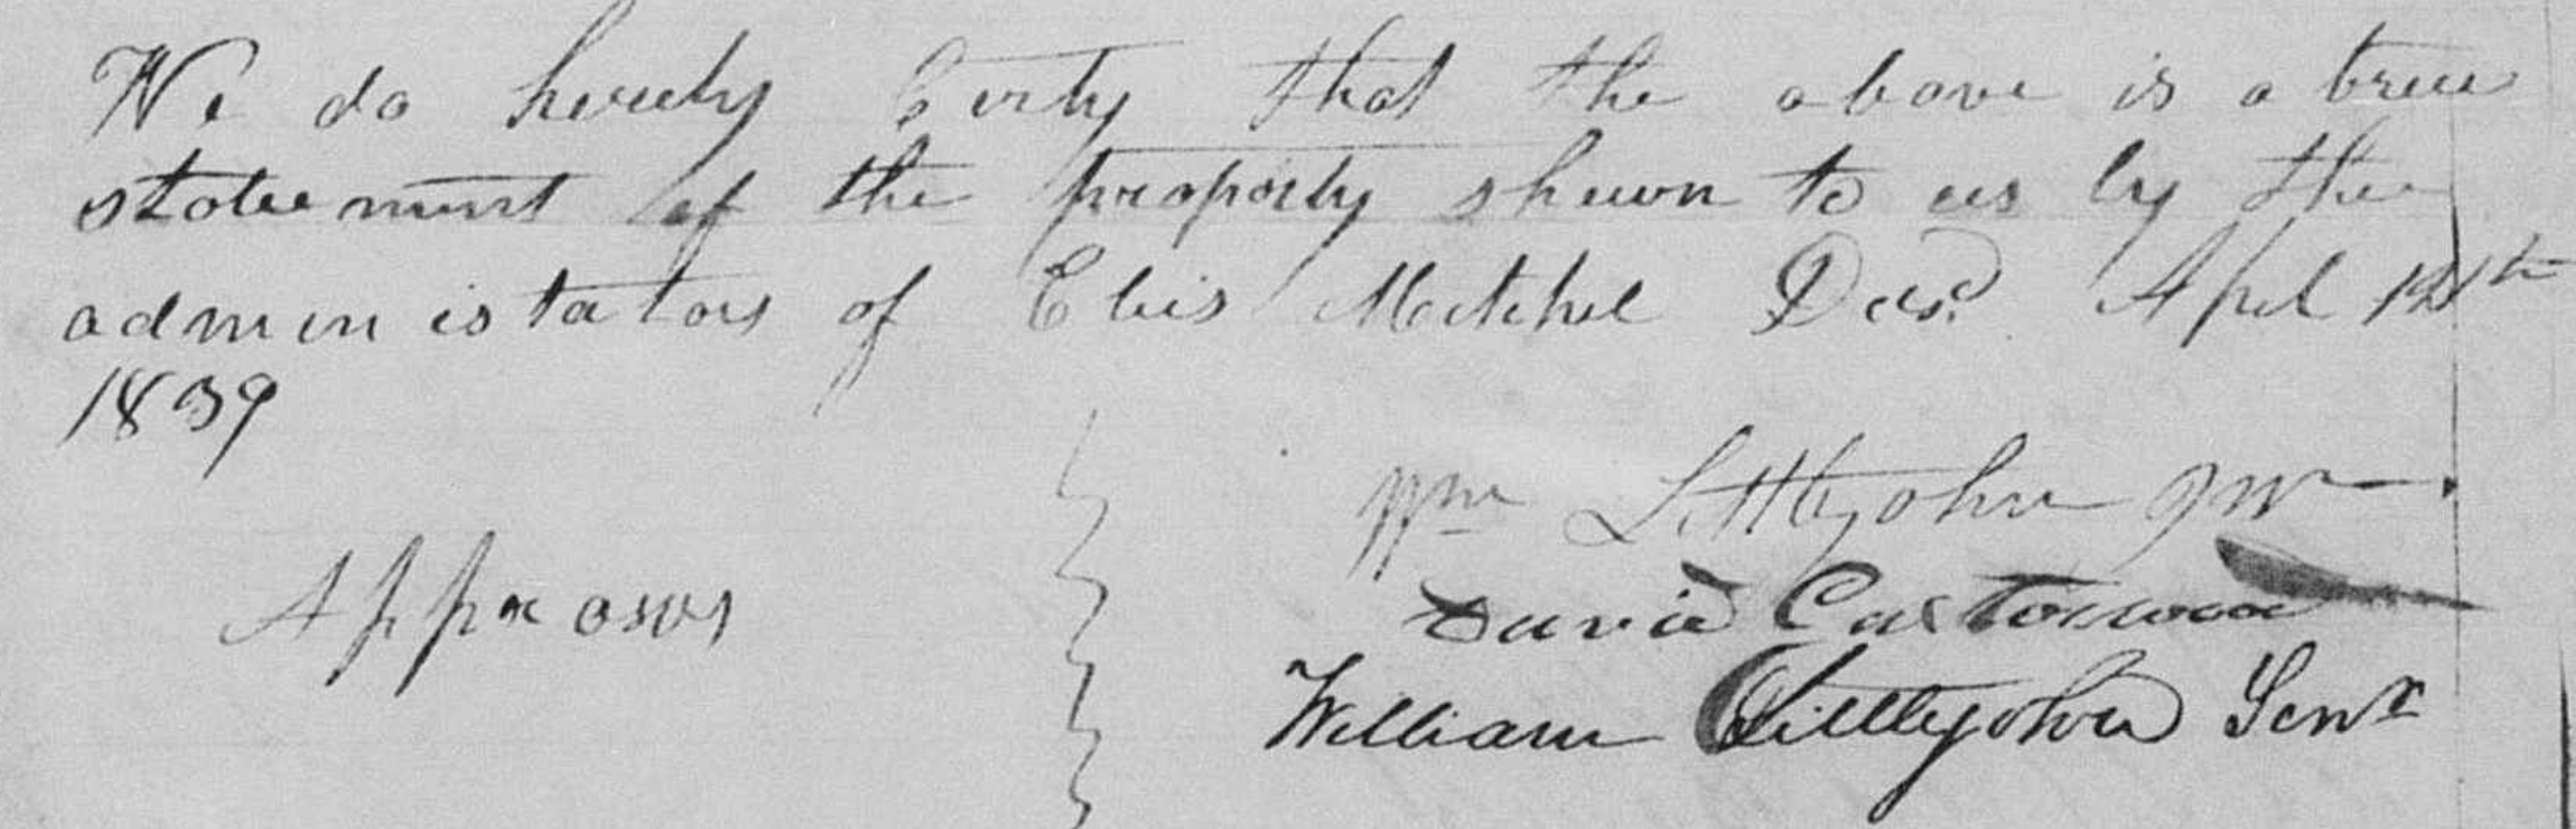 We do hereby Certy that the above is a true
statement of the property shewn to us by the
administators of Elis Mitchel Decs.d Aprl
1839
Wm Littlejohn Jnr
Appraosers
David
William Littlejohn Senr